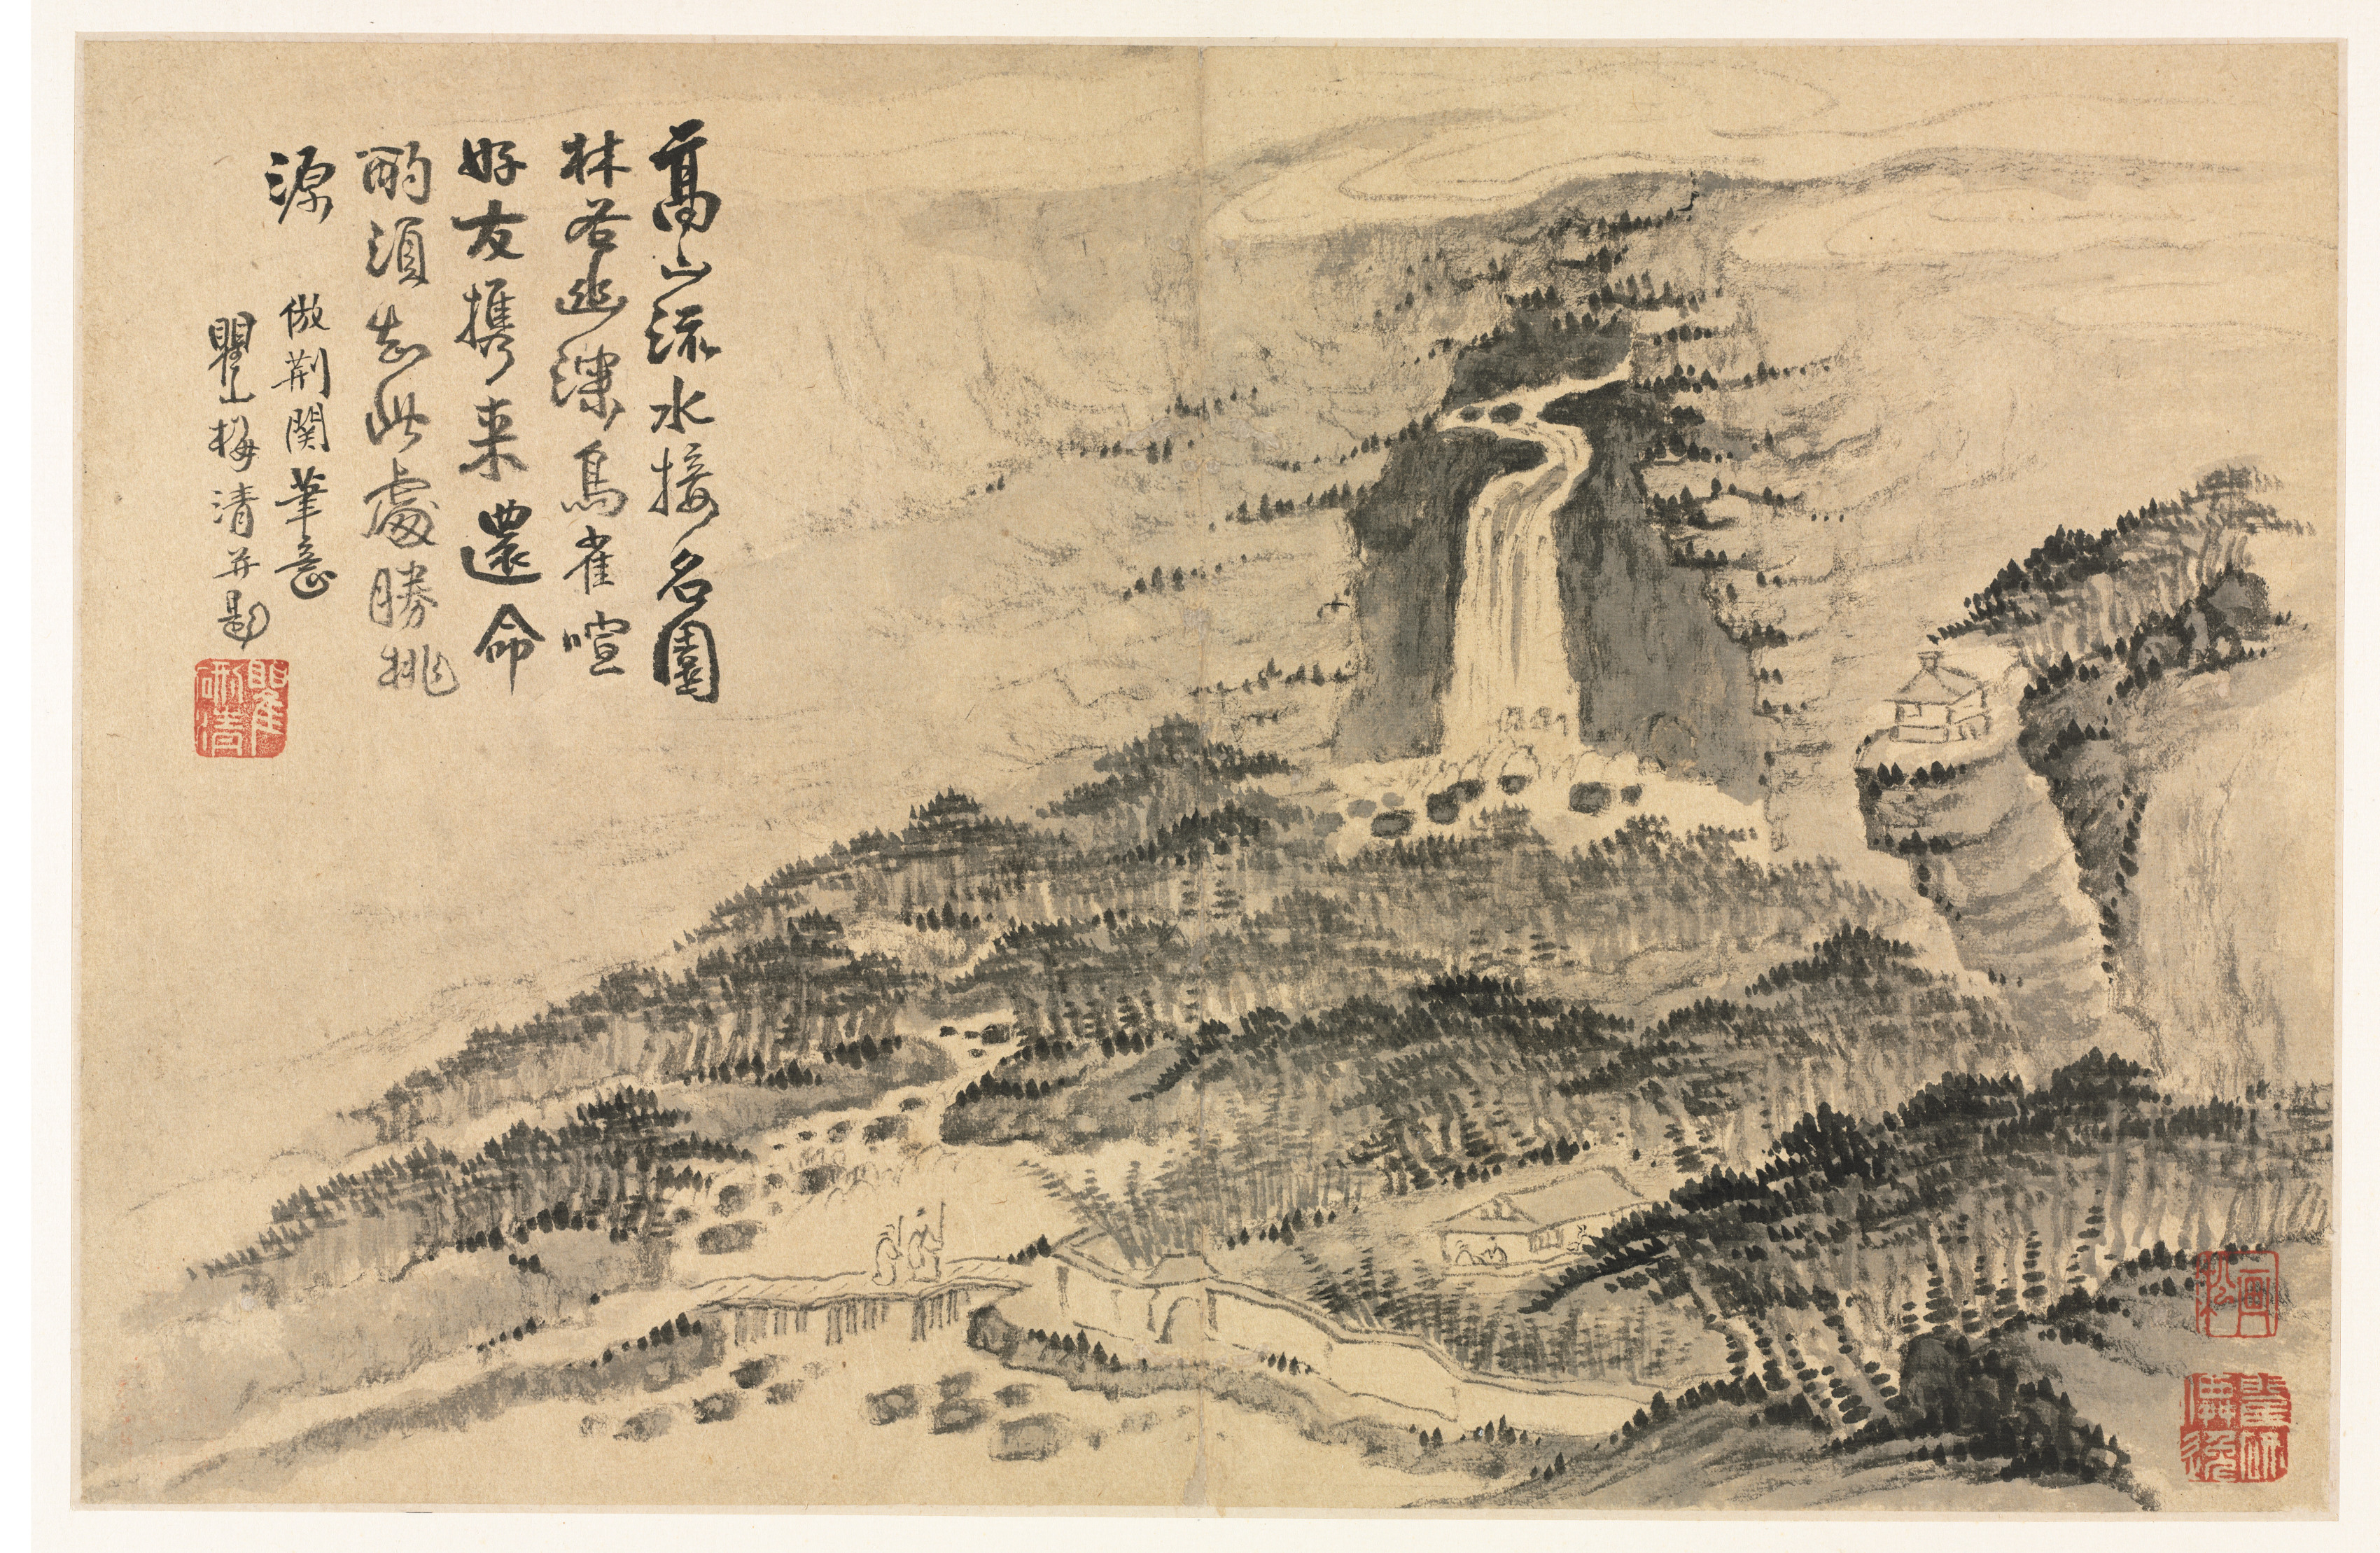 高山流水接名園
林谷幽深鳥雀喧
好友攜来還命
酌須知此處勝桃
源
倣荆関筆意
瞿山梅清并題